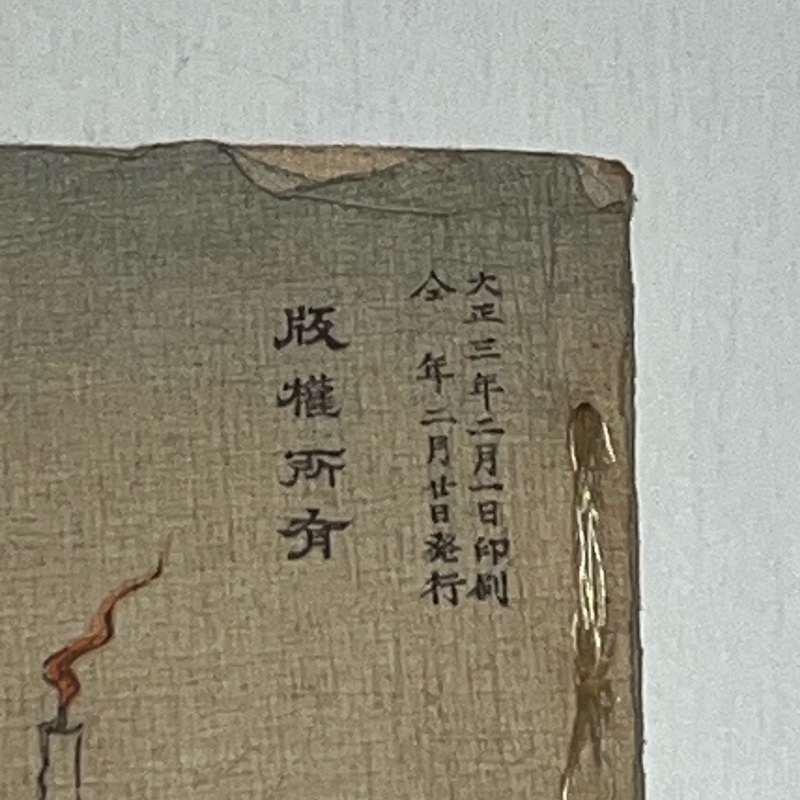 大正三年二月一日印刷
仝　年二月廿日発行
版權所有